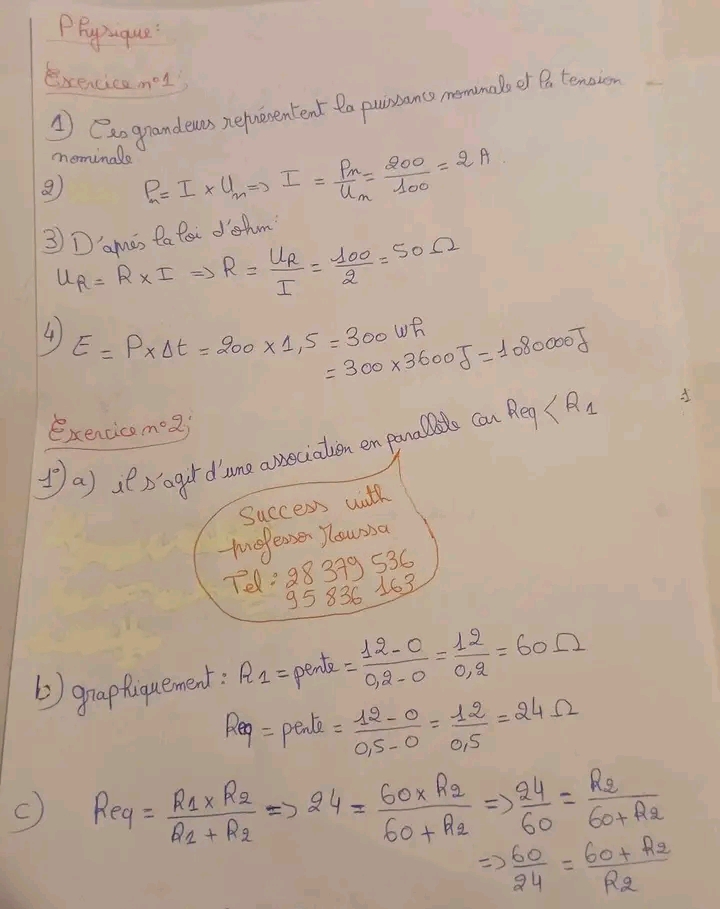 Physique:
Exercice n°1:
1) Ces grandeurs représentent la puissance nominale et la tension
nominale
2) Pn = I x Un => I = Pn/Un = 200/100 = 2 A.
3) D'aprés la loi d'ohm:
UR = R x I => R = UR/I = 100/2 = 50 Ω
4) E = P x Δt = 200 x 1,5 = 300 Wh
= 300 x 3600 J = 1080000 J
Exercice n°2:
1°) a) il s'agit d'une association en paralléle car Req < R1
Success with
professor Moussa
Tel: 28 379 536
95 836 163
b) graphiquement: R1 = pente = 12-0/0,2-0 = 12/0,2 = 60 Ω
Req = pente = 12-0/0,5-0 = 12/0,5 = 24 Ω
c) Req = R1 x R2/R1 + R2 => 24 = 60 x R2/60 + R2 => 24/60 = R2/60 + R2
=> 60/24 = 60 + R2/R2